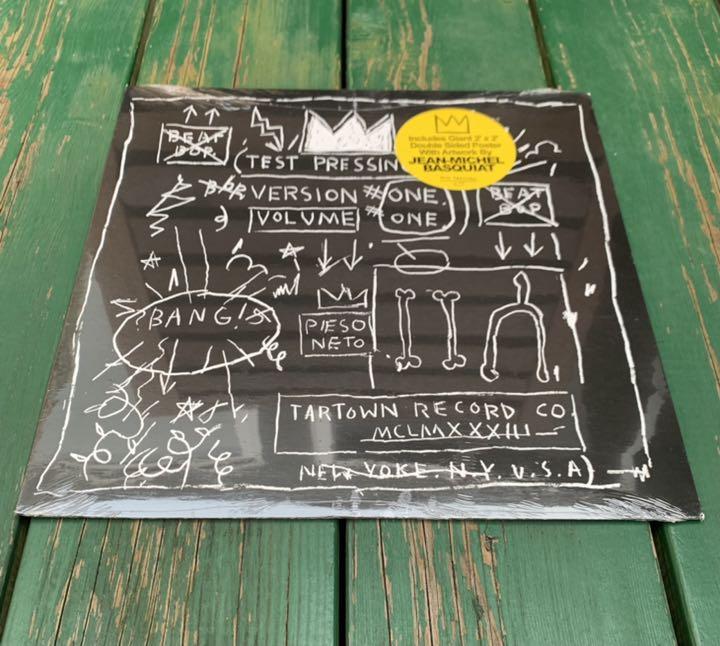 BEAT
BOP
TEST PRESSIN
Includes Giant 2' x 2'
Double Sided Poster
With Artwork By
JEAN-MICHEL
BASQUIAT
VERSION #ONE.
VOLUME #ONE
BEAT
BOP
BANG!
PIESO
NETO
TARTOWN RECORD CO.
MCLMXXXIII
NEW YOKE. N.Y. U.S.A